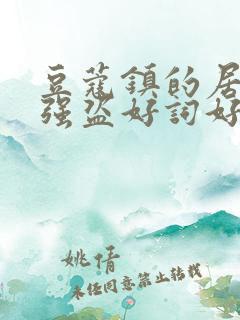 豆蔻鎮的居
强盗好詞好
姚倩
未经同意禁止转载